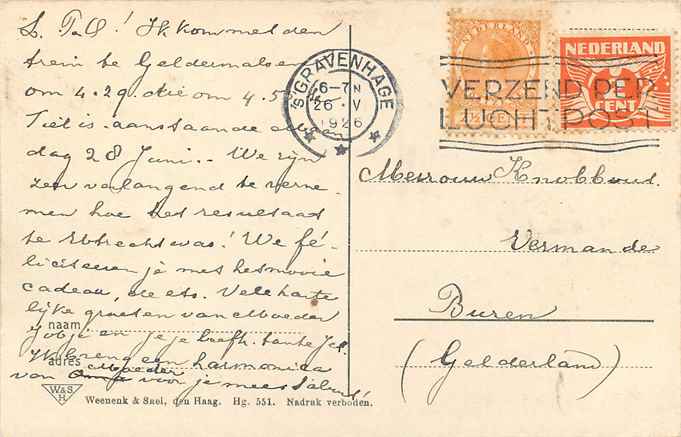 L. T. a. Q! Ik kom met den
trein te Geldermalsen
om 4.29 die om 4.5
Tiel is. aanstaande
dag 28 Juni. - We zijn
zeer verlangend te verne-
men hoe het resultaat
te Utrecht was! We fé-
liciteeren je met het mooie
cadeau, de ets. Vele harte
lijke groeten van Moeder
naam
en je je liefh. tante
adres
Ik breng een harmonica
van Moeder voor je mee
W&S
H
Weenenk & Snel, den Haag. Hg. 551. Nadruk verboden.
'S GRAVENHAGE
6-7N
26 V
1926
NEDERLAND
NEDERLAND
CENT
VERZEND PER
LUCHTPOST
Mevrouw Knobbout.
Vermande
Buren
(Gelderland)